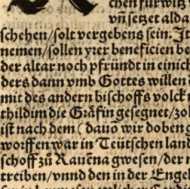 chen fürwitz
vñ setzet alda
schehen/ solt vergebens sein. It
nemen/ sollen yrer beneficien be
der altar noch pfründt in einich
ders dann vmb Gottes willen
mit des andern bischoffs volck
thildim die Gräfin gesegnet/ zol
ist nach dem (dauo wir doben
worffen war in Teütschen lant
schoff zů Rauena gwesen/ der
treiben/ vnnd den in der Enge